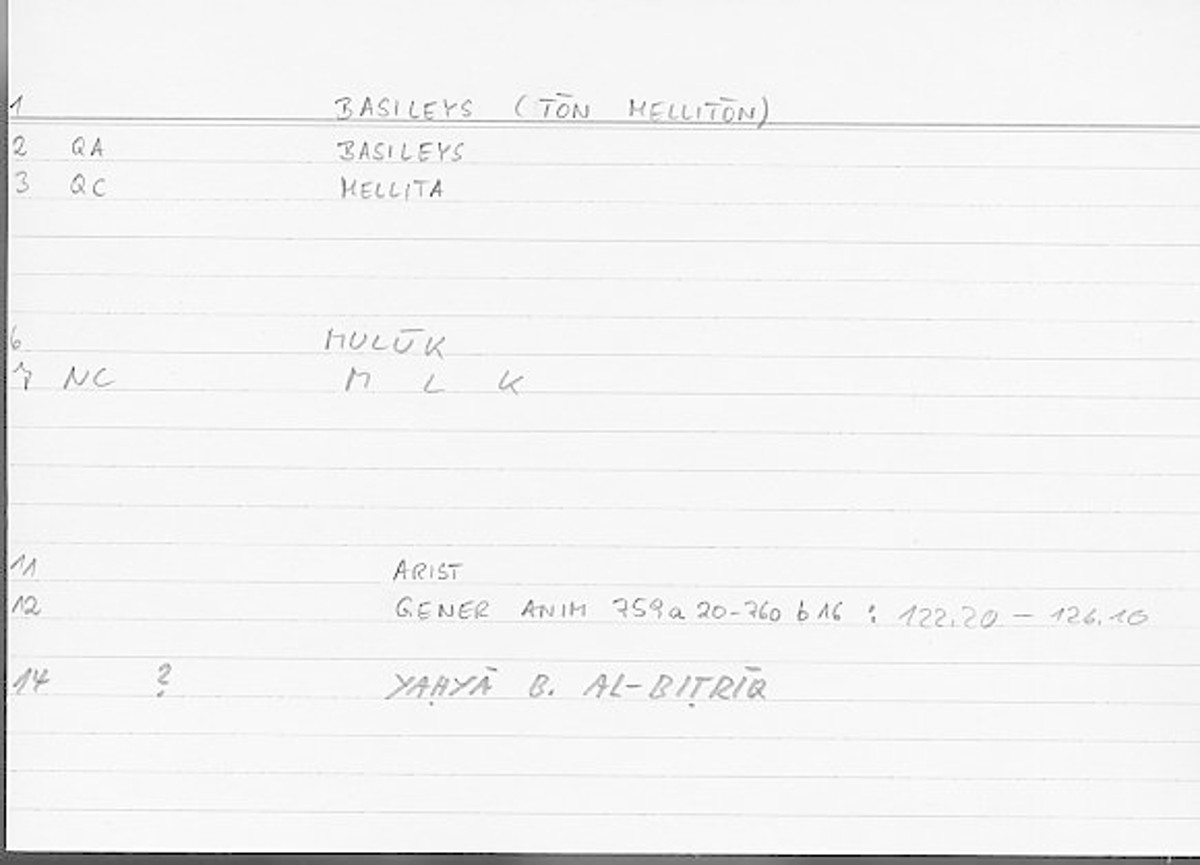 1 BASILEYS (TŌN MELLITŌN)
2 QA BASILEYS
3 QC MELLITA
6 MULŪK
7 NC M L K
11 ARIST
12 GENER ANIM 759a 20-760 b 16 : 122.20 – 126.10
14 ? YAḤYĀ B. AL-BIṬRĪQ